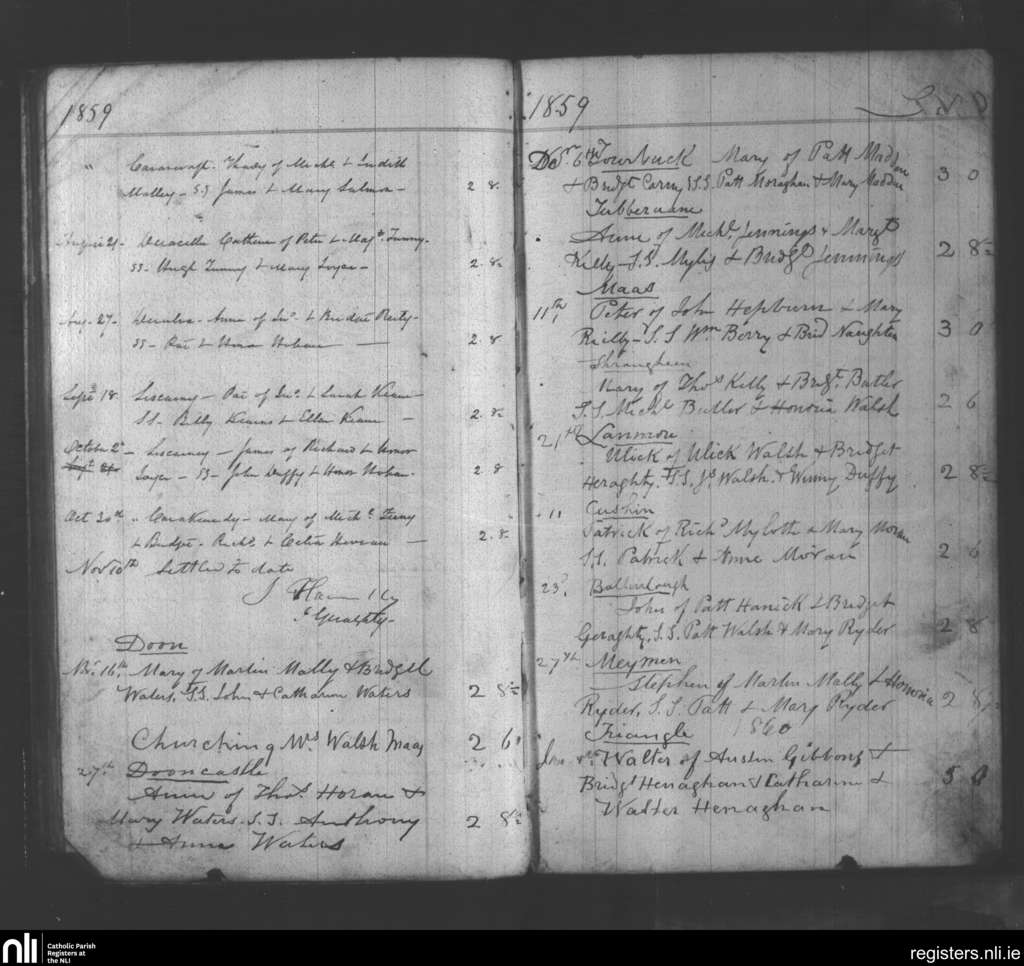 1859
" Thady of Michl & Judith
Malley - SS James & Mary Salmon - 2 8
August 21 - Catherine of Peter & Magt Tunny.
SS. Hugh Tunny & Mary Joyce - 2.8½
Aug. 27 - Anne of Jno. & Bridget
SS - Pat & Honor - 2.8
Sept 18 Liscarney - Pat of Jno. & Sarah
SS. Billy & Ellen - 2.8½
October 2d - Liscarney - James of Richard & Honor
Joyce - SS - John Duffy & Honor - 2 8
Oct 30th " Carrakennedy - Mary of Michl
& Bridget. Richd & Celia - 2.8
Nov 10th Settled to date
J
Geraghty -
Doon
Nbr. 16th, Mary of Martin Mally & Bridgtt
Waters, S.S. John & Catharin Waters 2 8½
Churching Mrs Walsh Maas 2 6
27th Dooncastle
Anne of Thos. Horan &
Mary Waters. S.S. Anthony 2 8½
& Anne Waters
1859 £ S D
Dbr 6th Tourbuck Mary of Patt Madden
& Bridgt S.S. Patt Monaghan & Mary Madden 3 0
Anne of Michl. Jennings & Margt
Kelly - S.S. Myles & Bridgt Jennings 2 8½
Maas
11th, Peter of John Hepburn & Mary
Reilly - S.S Wm. Berry & Brid Naughten 3 0
Mary of Thos Kelly & Bridgt. Butler
S.S. Michl Butler & Honoria Walsh 2 6
21st Lanmore
Ulick of Ulick Walsh & Bridget
Heraghty. S.S. Js. Walsh. & Winny Duffy 2 8½
" Cushin
Patrick of Richd Mylotte & Mary Moran
S.S. Patrick & Anne Moran 2 6
23d
John of Patt Hanick & Bridget
Geraghty, S.S. Patt Walsh & Mary Ryder 2 8
27th
Stephen of Martin Mally & Honoria
Ryder, S.S. Patt & Mary Ryder 2 8½
Triangle 1860
Jan Walter of Austin Gibbons &
Bridgt Henaghan & Catharin & 5 0
Walter Henaghan
nli
Catholic Parish
Registers at
the NLI
registers.nli.ie